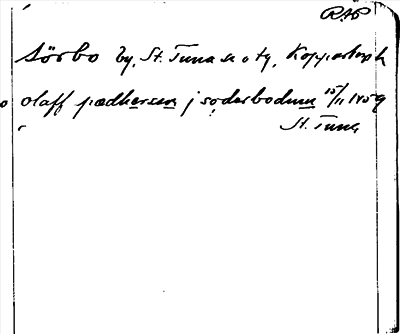 RAP
Sörbo by, St. Tuna sn o tg, Kopparbergs l
olaff pædherson j söderbodum 15/11 1459
St. Tuna